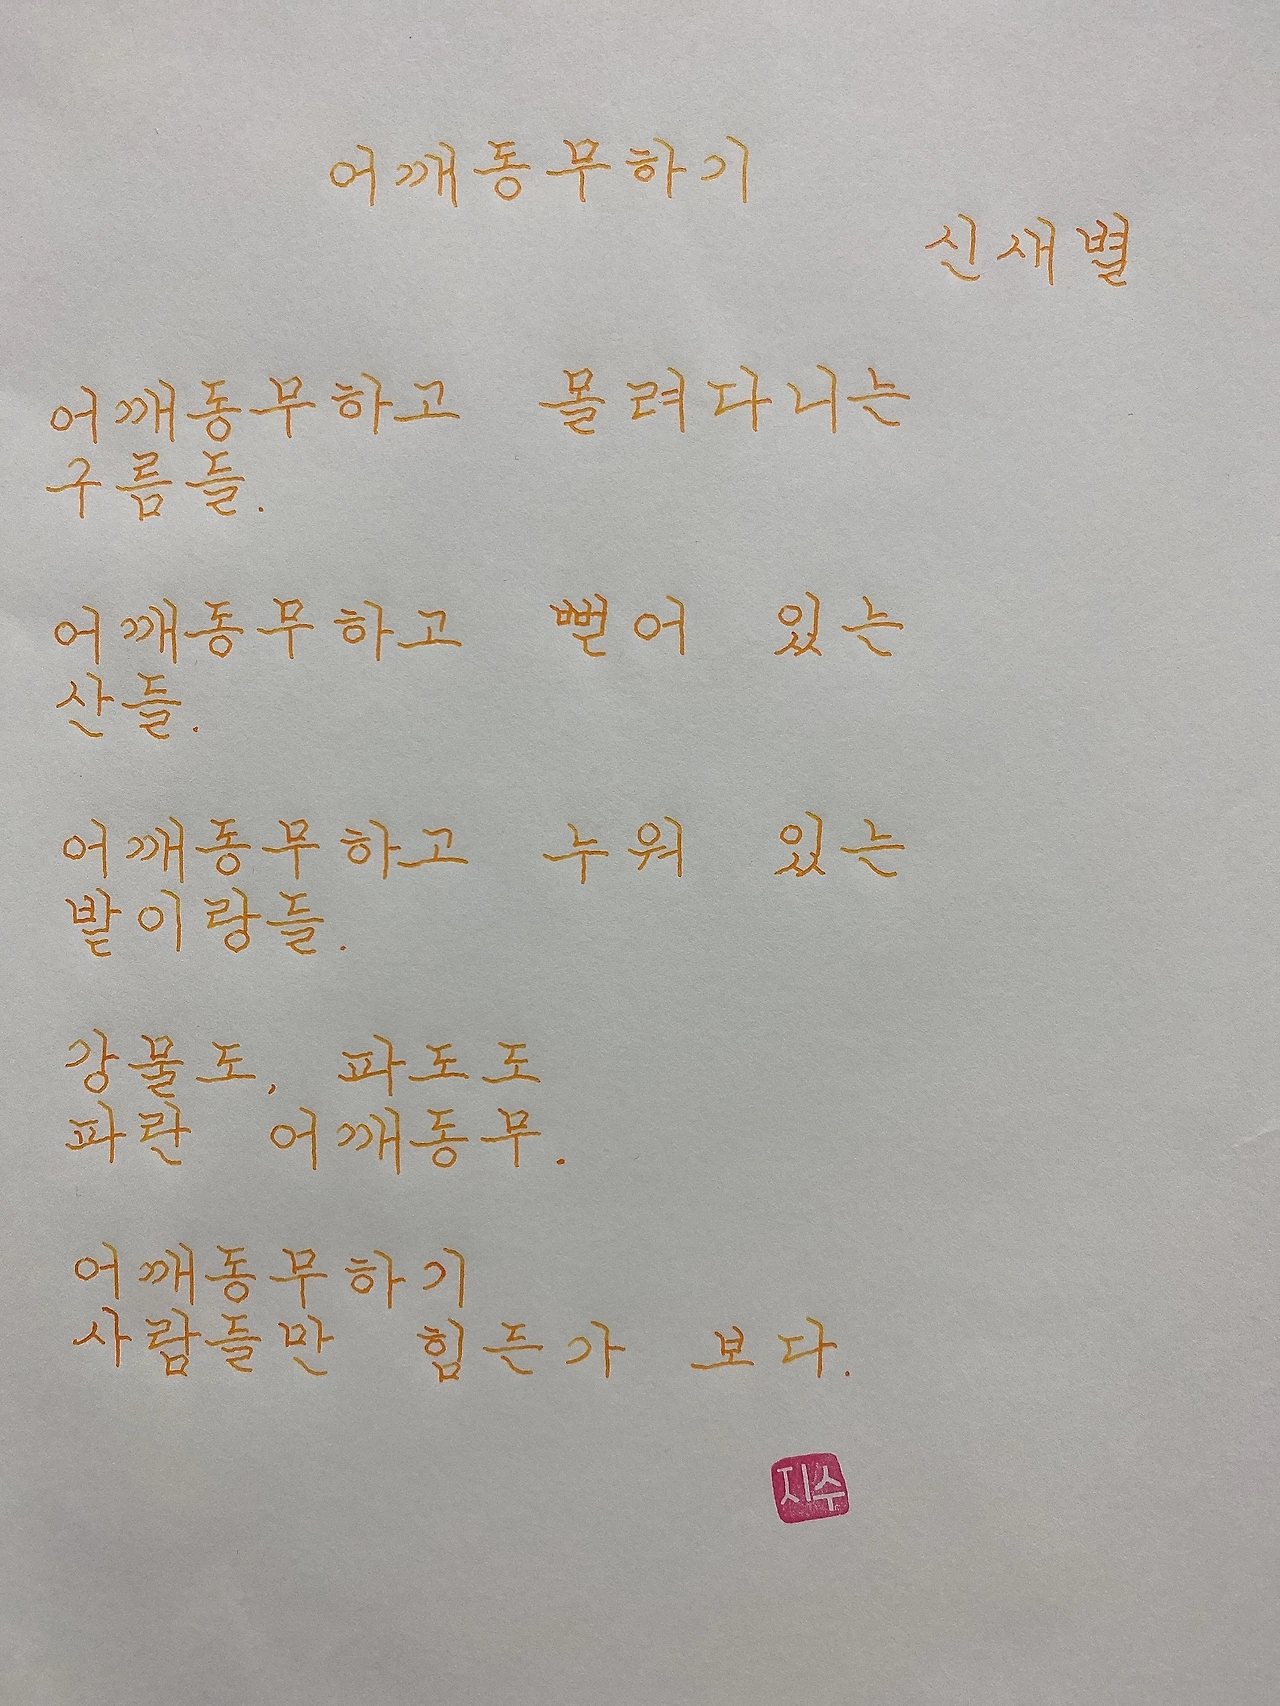 어깨동무하기
신새별
어깨동무하고 몰려다니는
구름들.
어깨동무하고 뻗어 있는
산들.
어깨동무하고 누워 있는
밭이랑들.
강물도, 파도도
파란 어깨동무.
어깨동무하기
사람들만 힘든가 보다.
지수